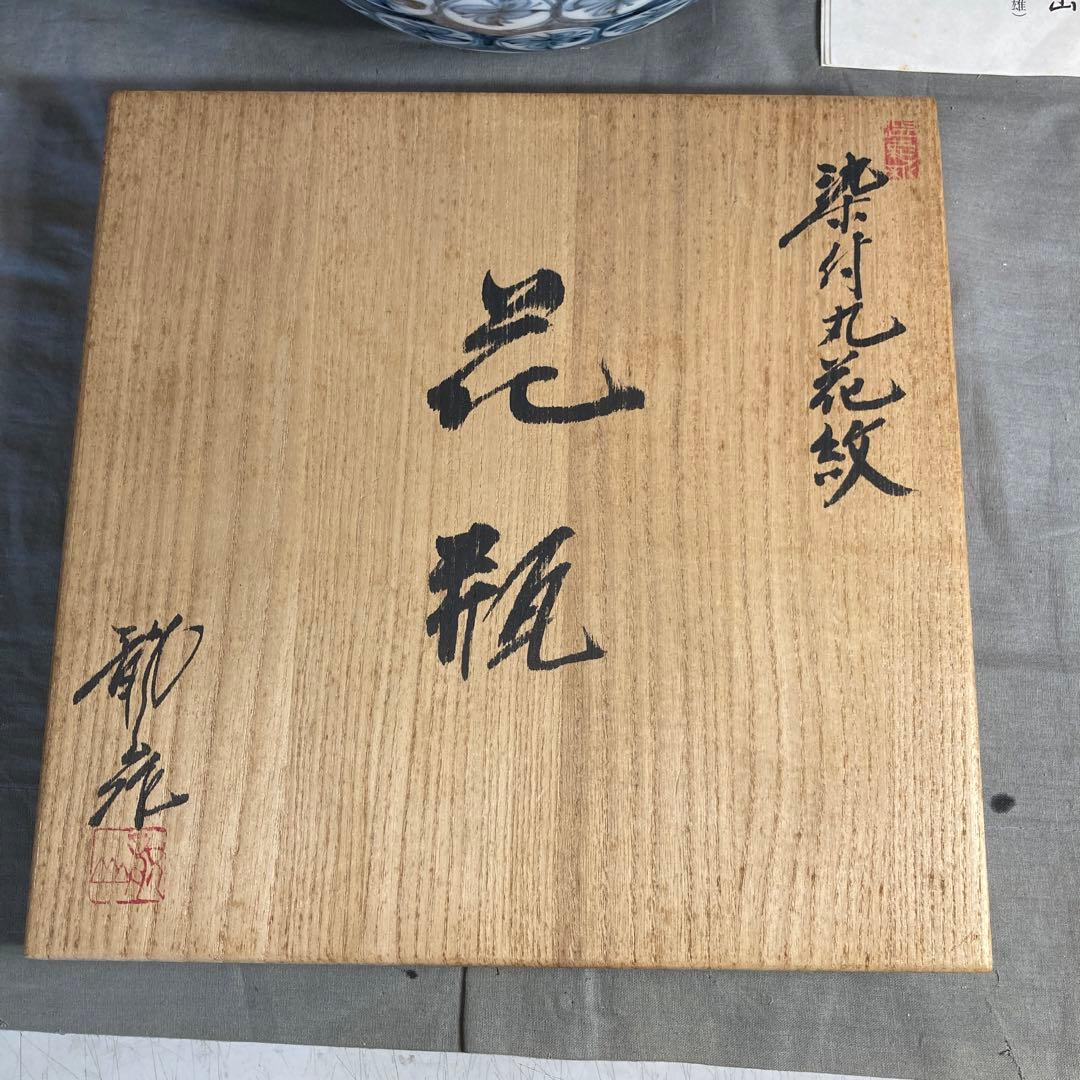 染付丸花紋
花瓶
龍作
山
雄）